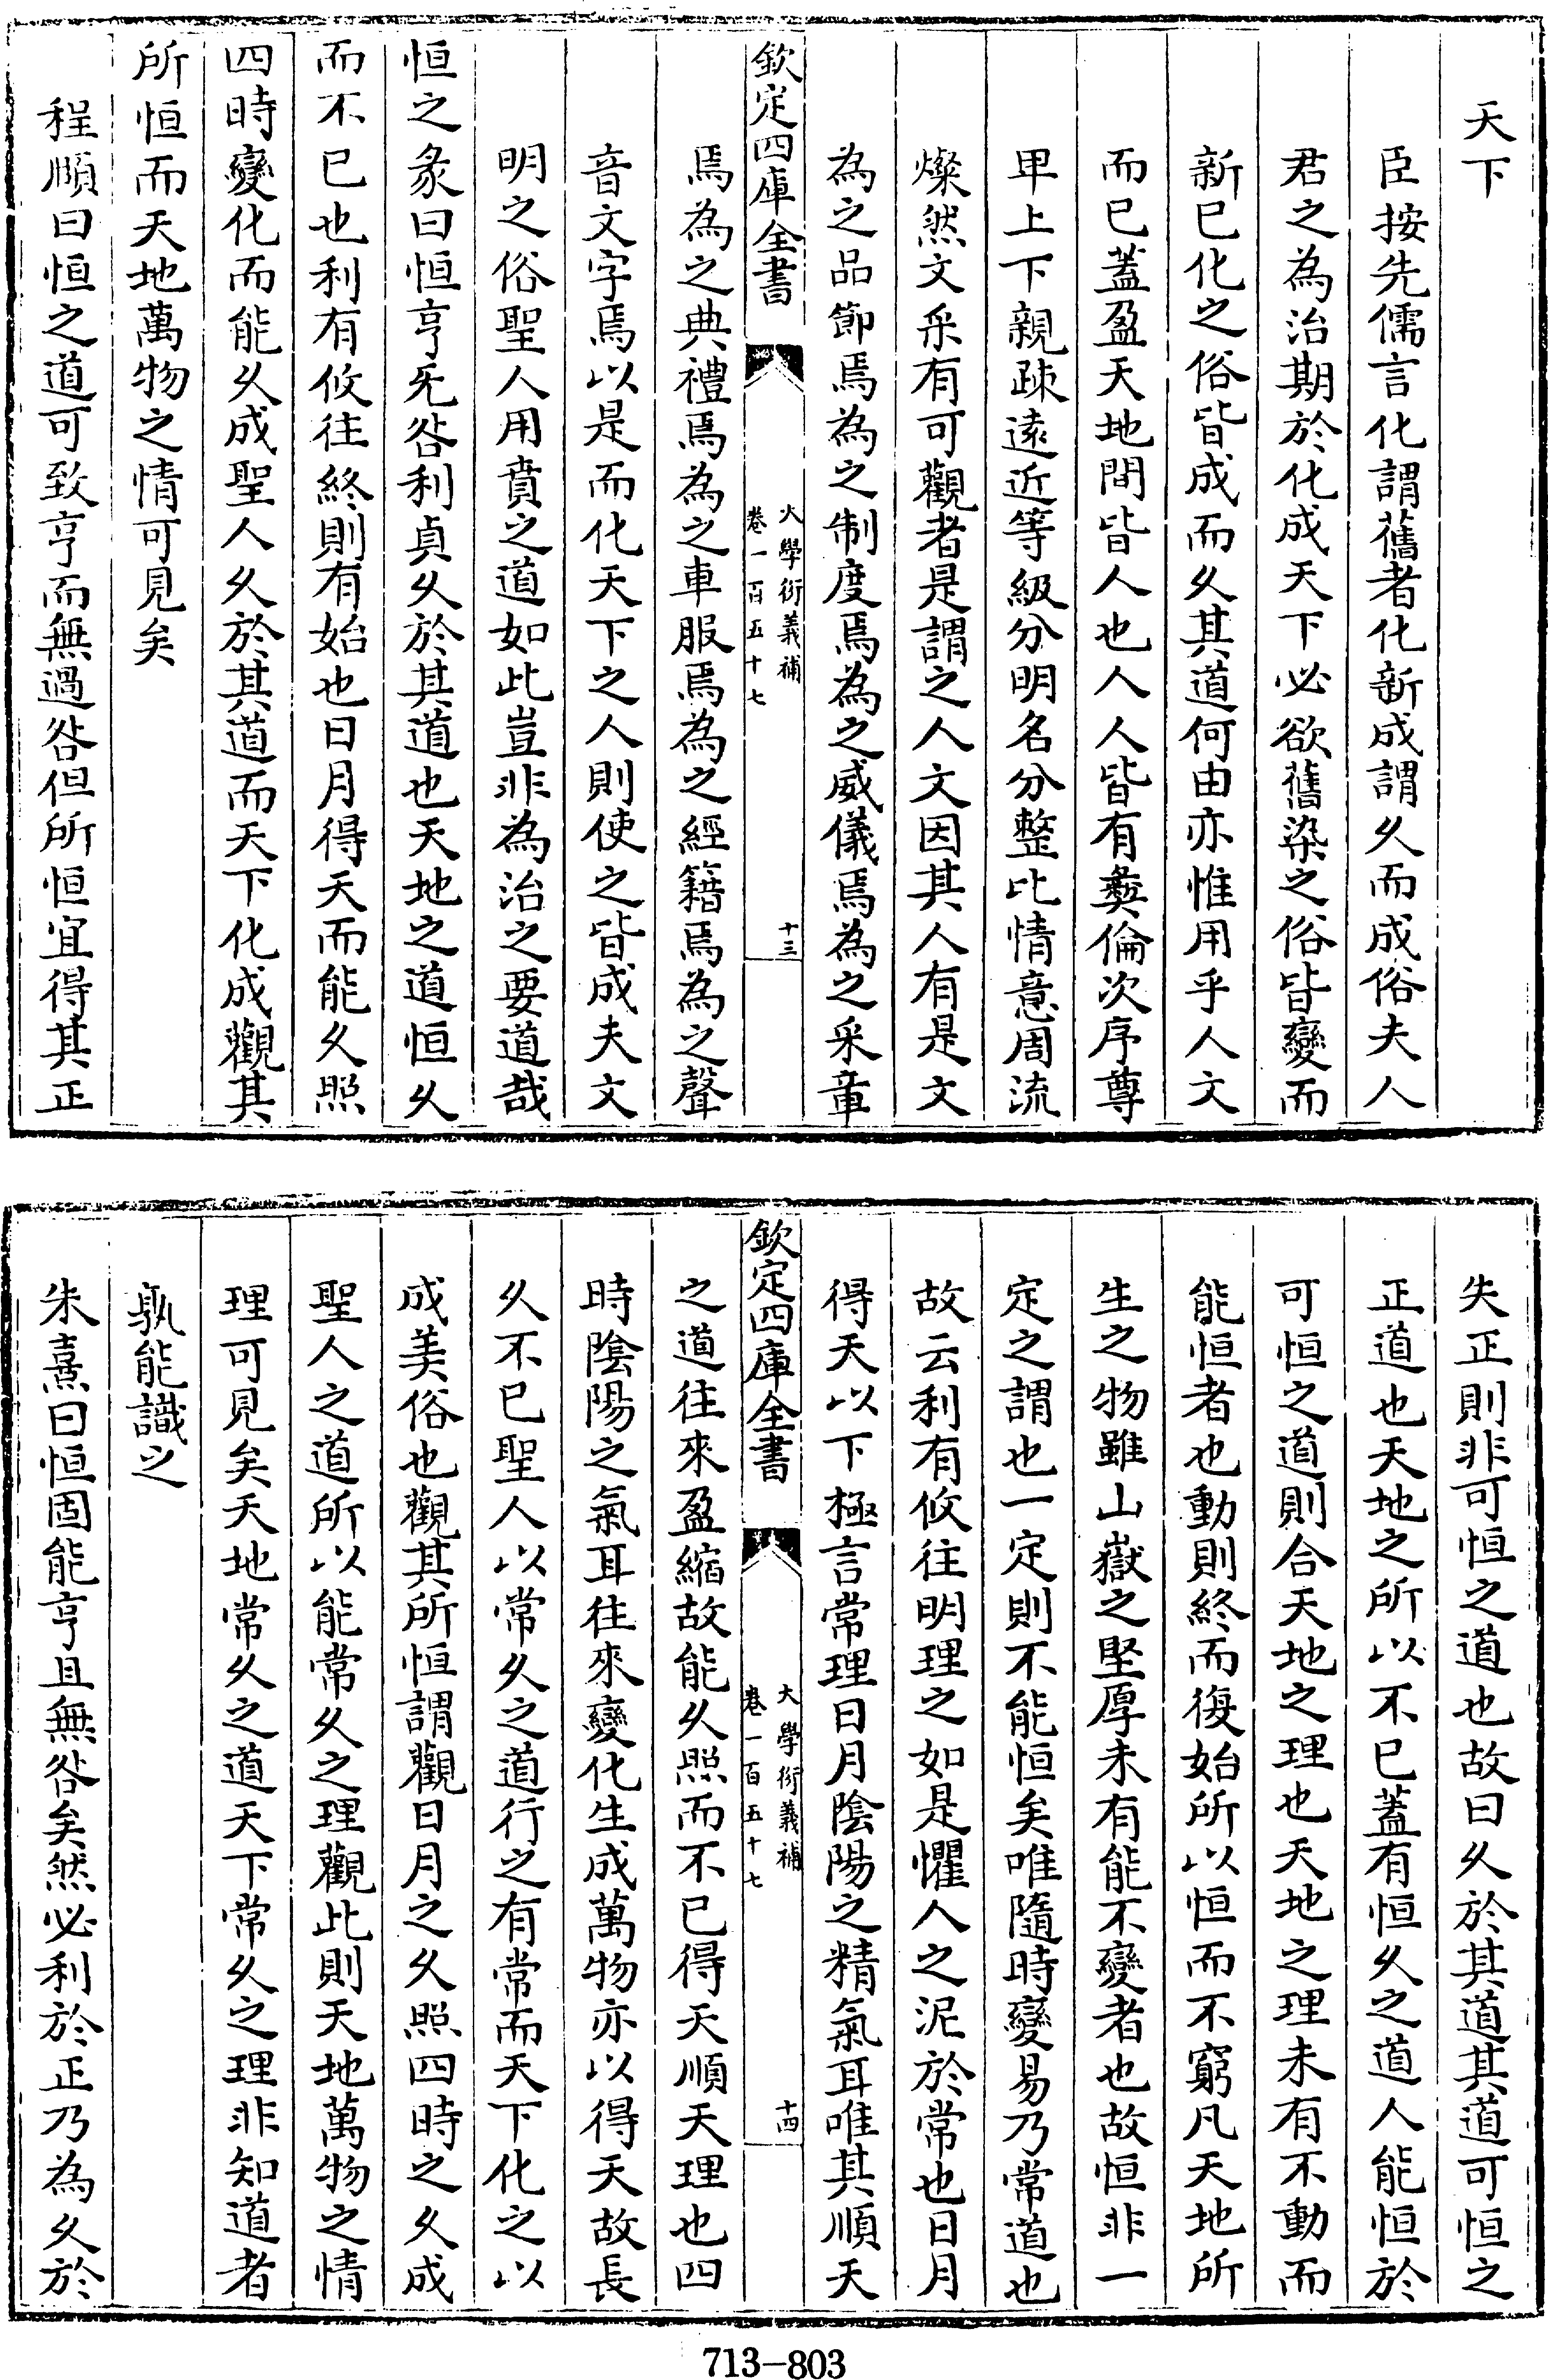 天下
臣按先儒言化謂舊者化新成謂乆而成俗夫人
君之為治期於化成天下必欲舊染之俗皆變而
新已化之俗皆成而乆其道何由亦惟用乎人文
而已蓋盈天地間皆人也人人皆有彞倫次序尊
卑上下親踈逺近等級分明名分整比情意周流
燦然文采有可觀者是謂之人文因其人有是文
為之品節焉為之制度焉為之威儀焉為之采章
欽定四庫全書
大學衍義補
卷一百五十七
十三
焉為之典禮焉為之車服焉為之經籍焉為之聲
音文字焉以是而化天下之人則使之皆成夫文
明之俗聖人用賁之道如此豈非為治之要道哉
恒之彖曰恒亨无咎利貞乆於其道也天地之道恒乆
而不已也利有攸往終則有始也日月得天而能乆照
四時變化而能乆成聖人乆於其道而天下化成觀其
所恒而天地萬物之情可見矣
程頤曰恒之道可致亨而無過咎但所恒宜得其正
失正則非可恒之道也故曰乆於其道其道可恒之
正道也天地之所以不已蓋有恒乆之道人能恒於
可恒之道則合天地之理也天地之理未有不動而
能恒者也動則終而復始所以恒而不窮凡天地所
生之物雖山嶽之堅厚未有能不變者也故恒非一
定之謂也一定則不能恒矣唯隨時變易乃常道也
故云利有攸往明理之如是懼人之泥於常也日月
得天以下極言常理日月陰陽之精氣耳唯其順天
欽定四庫全書
大學衍義補
卷一百五十七
十四
之道往來盈縮故能乆照而不已得天順天理也四
時陰陽之氣耳往來變化生成萬物亦以得天故長
乆不已聖人以常乆之道行之有常而天下化之以
成美俗也觀其所恒謂觀日月之乆照四時之乆成
聖人之道所以能常乆之理觀此則天地萬物之情
理可見矣天地常乆之道天下常乆之理非知道者
孰能識之
朱熹曰恒固能亨且無咎矣然必利於正乃為乆於
713-803